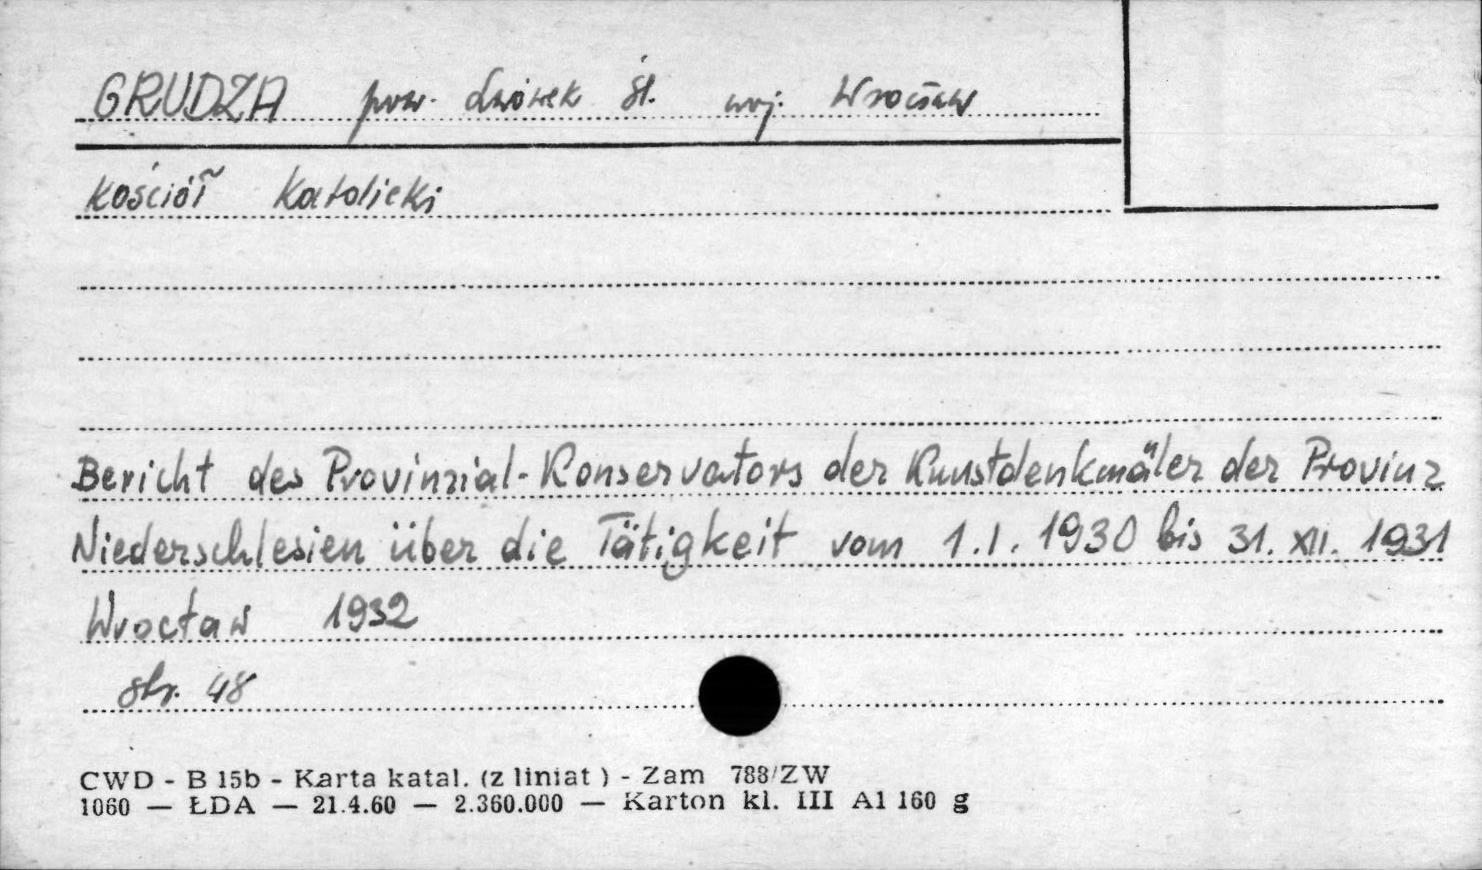 GRUDZA pow. Lwówek Śl. woj. Wrocław
Kościół Katolicki
Bericht des Provinzial-Konservators der Kunstdenkmäler der Provinz
Niederschlesien über die Tätigkeit vom 1.I.1930 bis 31.XII.1931
Wrocław 1932
str. 48
CWD - B 15b - Karta katal. (z liniat ) - Zam 788/ZW
1060 — ŁDA — 21.4.60 — 2.360.000 — Karton kl. III A1 160 g